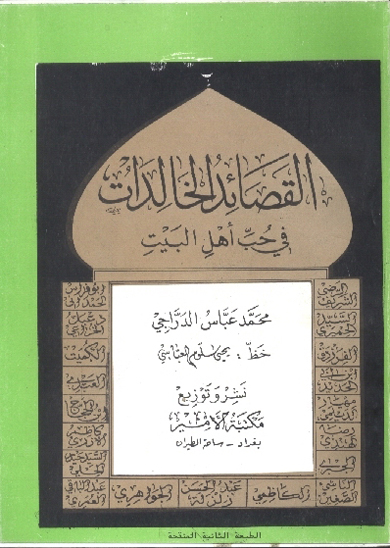 القصائد الخالدات
في حُبّ أهل البيت
محمد عباس الدراجي
خط : يحيى سلوم العباسي
نشر وتوزيع
مكتبة الأمير
بغداد - ساحة الطيران
الشريف
السيد
الحميري
الفرزدق
ابن أبي
الحديد
مهيار
أبو فراس
الحمداني
دعبل
الخزاعي
الكميت
ابن الحجاج
كاظم
الأزري
السيد حيدر
الحلي
الناشئ
الصغير
الكاظمي
عبد الحسين
الجواهري
عبد الباقي
العمري
الطبعة الثانية المنقحة